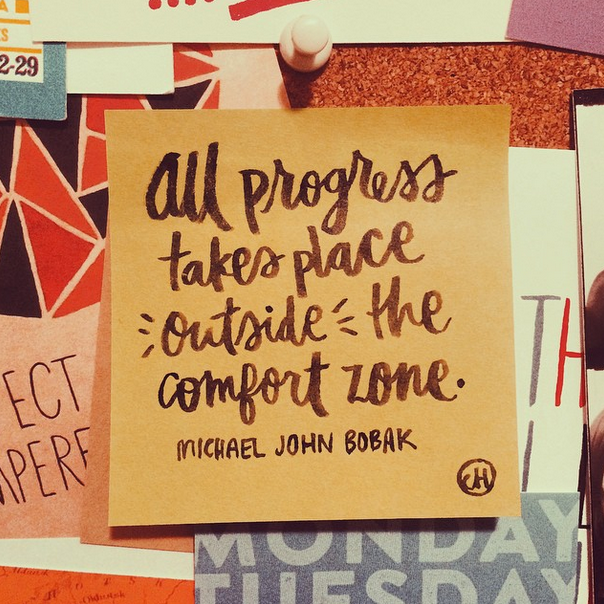 2-29
all progress
takes place
outside the
comfort zone.
MICHAEL JOHN BOBAK
JH
ECT
TH
MONDAY
TUESDAY